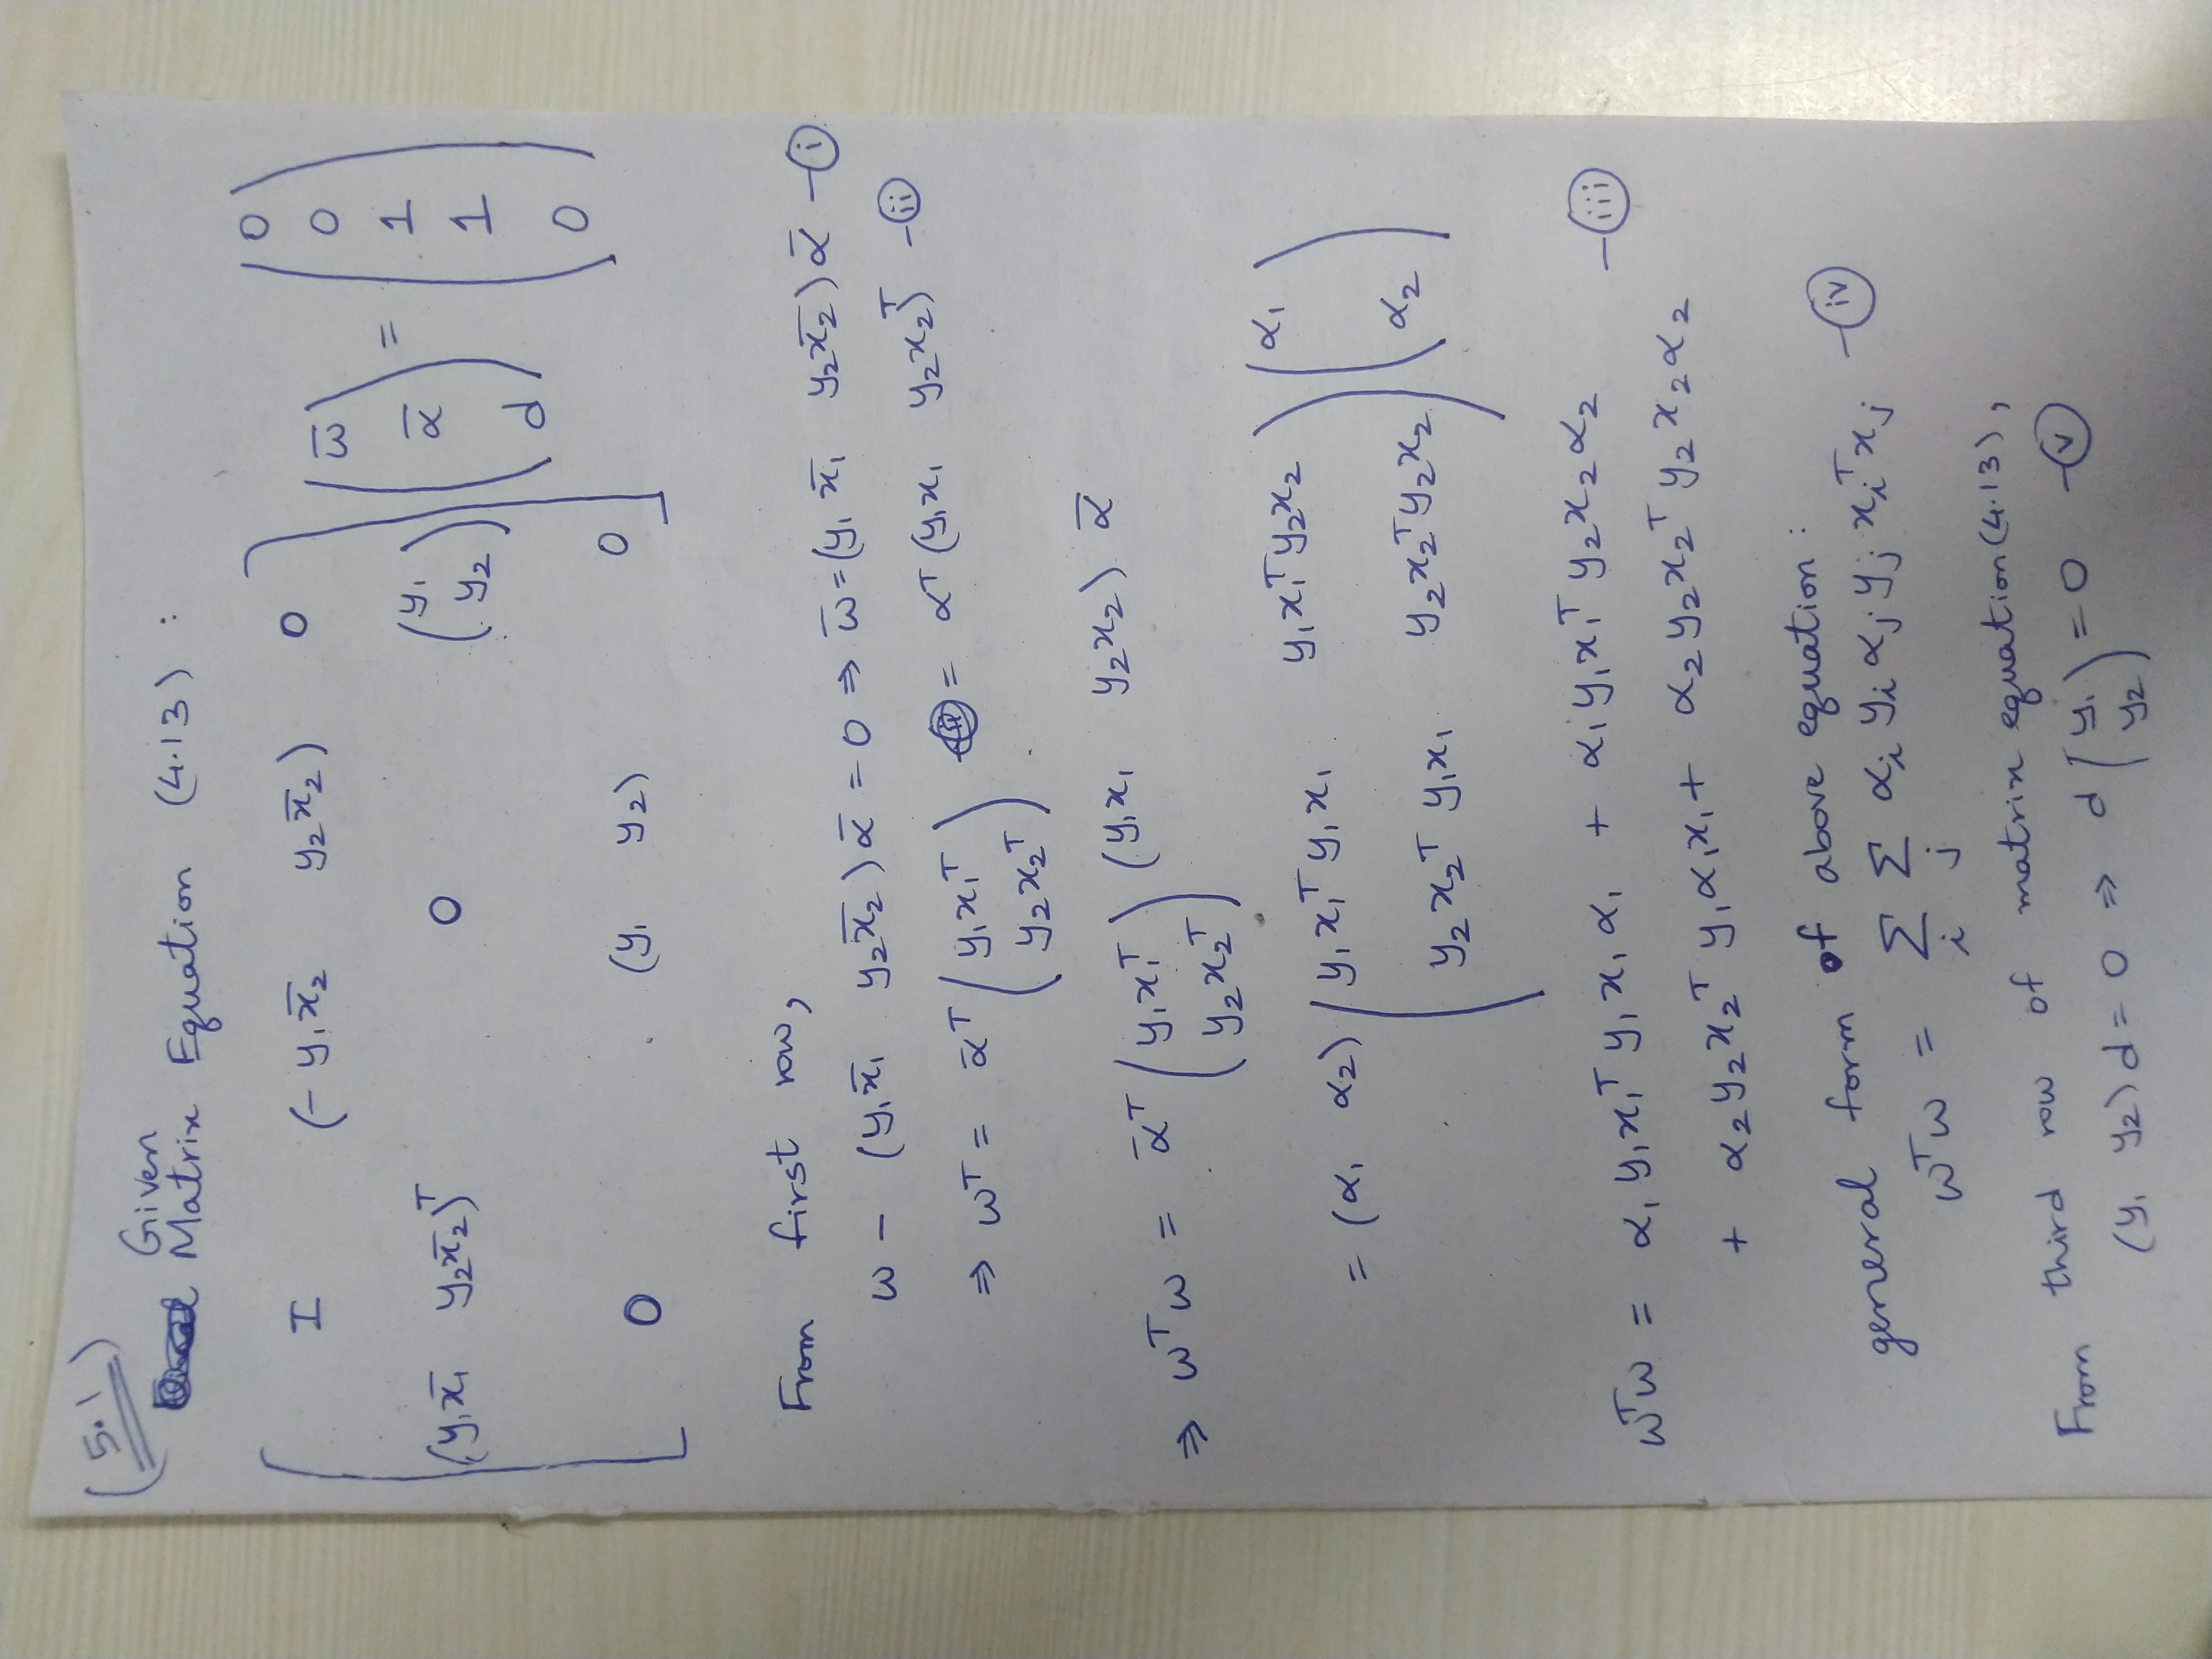 (5.1)
Given
Matrix Equation (4.13) :
[ I (- y₁x̄₂ y₂x̄₂) 0 ] ( ω̄ ) = ( 0
0
(y₁x̄₁ y₂x̄₂)ᵀ 0 (y₁ y₂) ᾱ 1
1
0 (y₁ y₂) 0 d 0 )
From first row,
ω - (y₁x̄₁ y₂x̄₂) ᾱ = 0 ⇒ ω̄ = (y₁ x̄₁ y₂x̄₂) ᾱ - (i)
⇒ ωᵀ = ᾱᵀ ( y₁x₁ᵀ y₂x₂ᵀ ) = αᵀ (y₁x₁ y₂x₂)ᵀ - (ii)
⇒ ωᵀω = ᾱᵀ ( y₁x₁ᵀ y₂x₂ᵀ ) (y₁x₁ y₂x₂) ᾱ
= (α₁ α₂) ( y₁x₁ᵀ y₁x₁ y₁x₁ᵀ y₂x₂ ( α₁
y₂x₂ᵀ y₁x₁ y₂x₂ᵀ y₂x₂ ) α₂ )
ωᵀω = α₁ y₁x₁ᵀ y₁ x₁ α₁ + α₁ y₁x₁ᵀ y₂x₂α₂ - (iii)
+ α₂y₂x₂ᵀ y₁α₁x₁ + α₂y₂x₂ᵀ y₂x₂α₂
general form of above equation :
ωᵀω = Σᵢ Σⱼ αᵢ yᵢ αⱼ yⱼ xᵢᵀxⱼ - (iv)
From third row of matrix equation (4.13),
(y₁ y₂) d = 0 ⇒ d ( y₁ y₂ ) = 0 - (v)